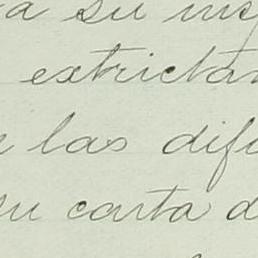 a su ins
extricta
e las dif
su carta d